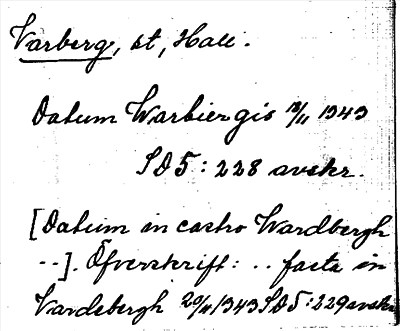 Varberg, st, Hall.
Datum Warbiergis 18/11 1343
SD5: 228 avskr.
[Datum in castro Wardbergh
--]. Öfverskrift: .. facta in
Vardsbergh 20/11 1343 SD5:229 avskr